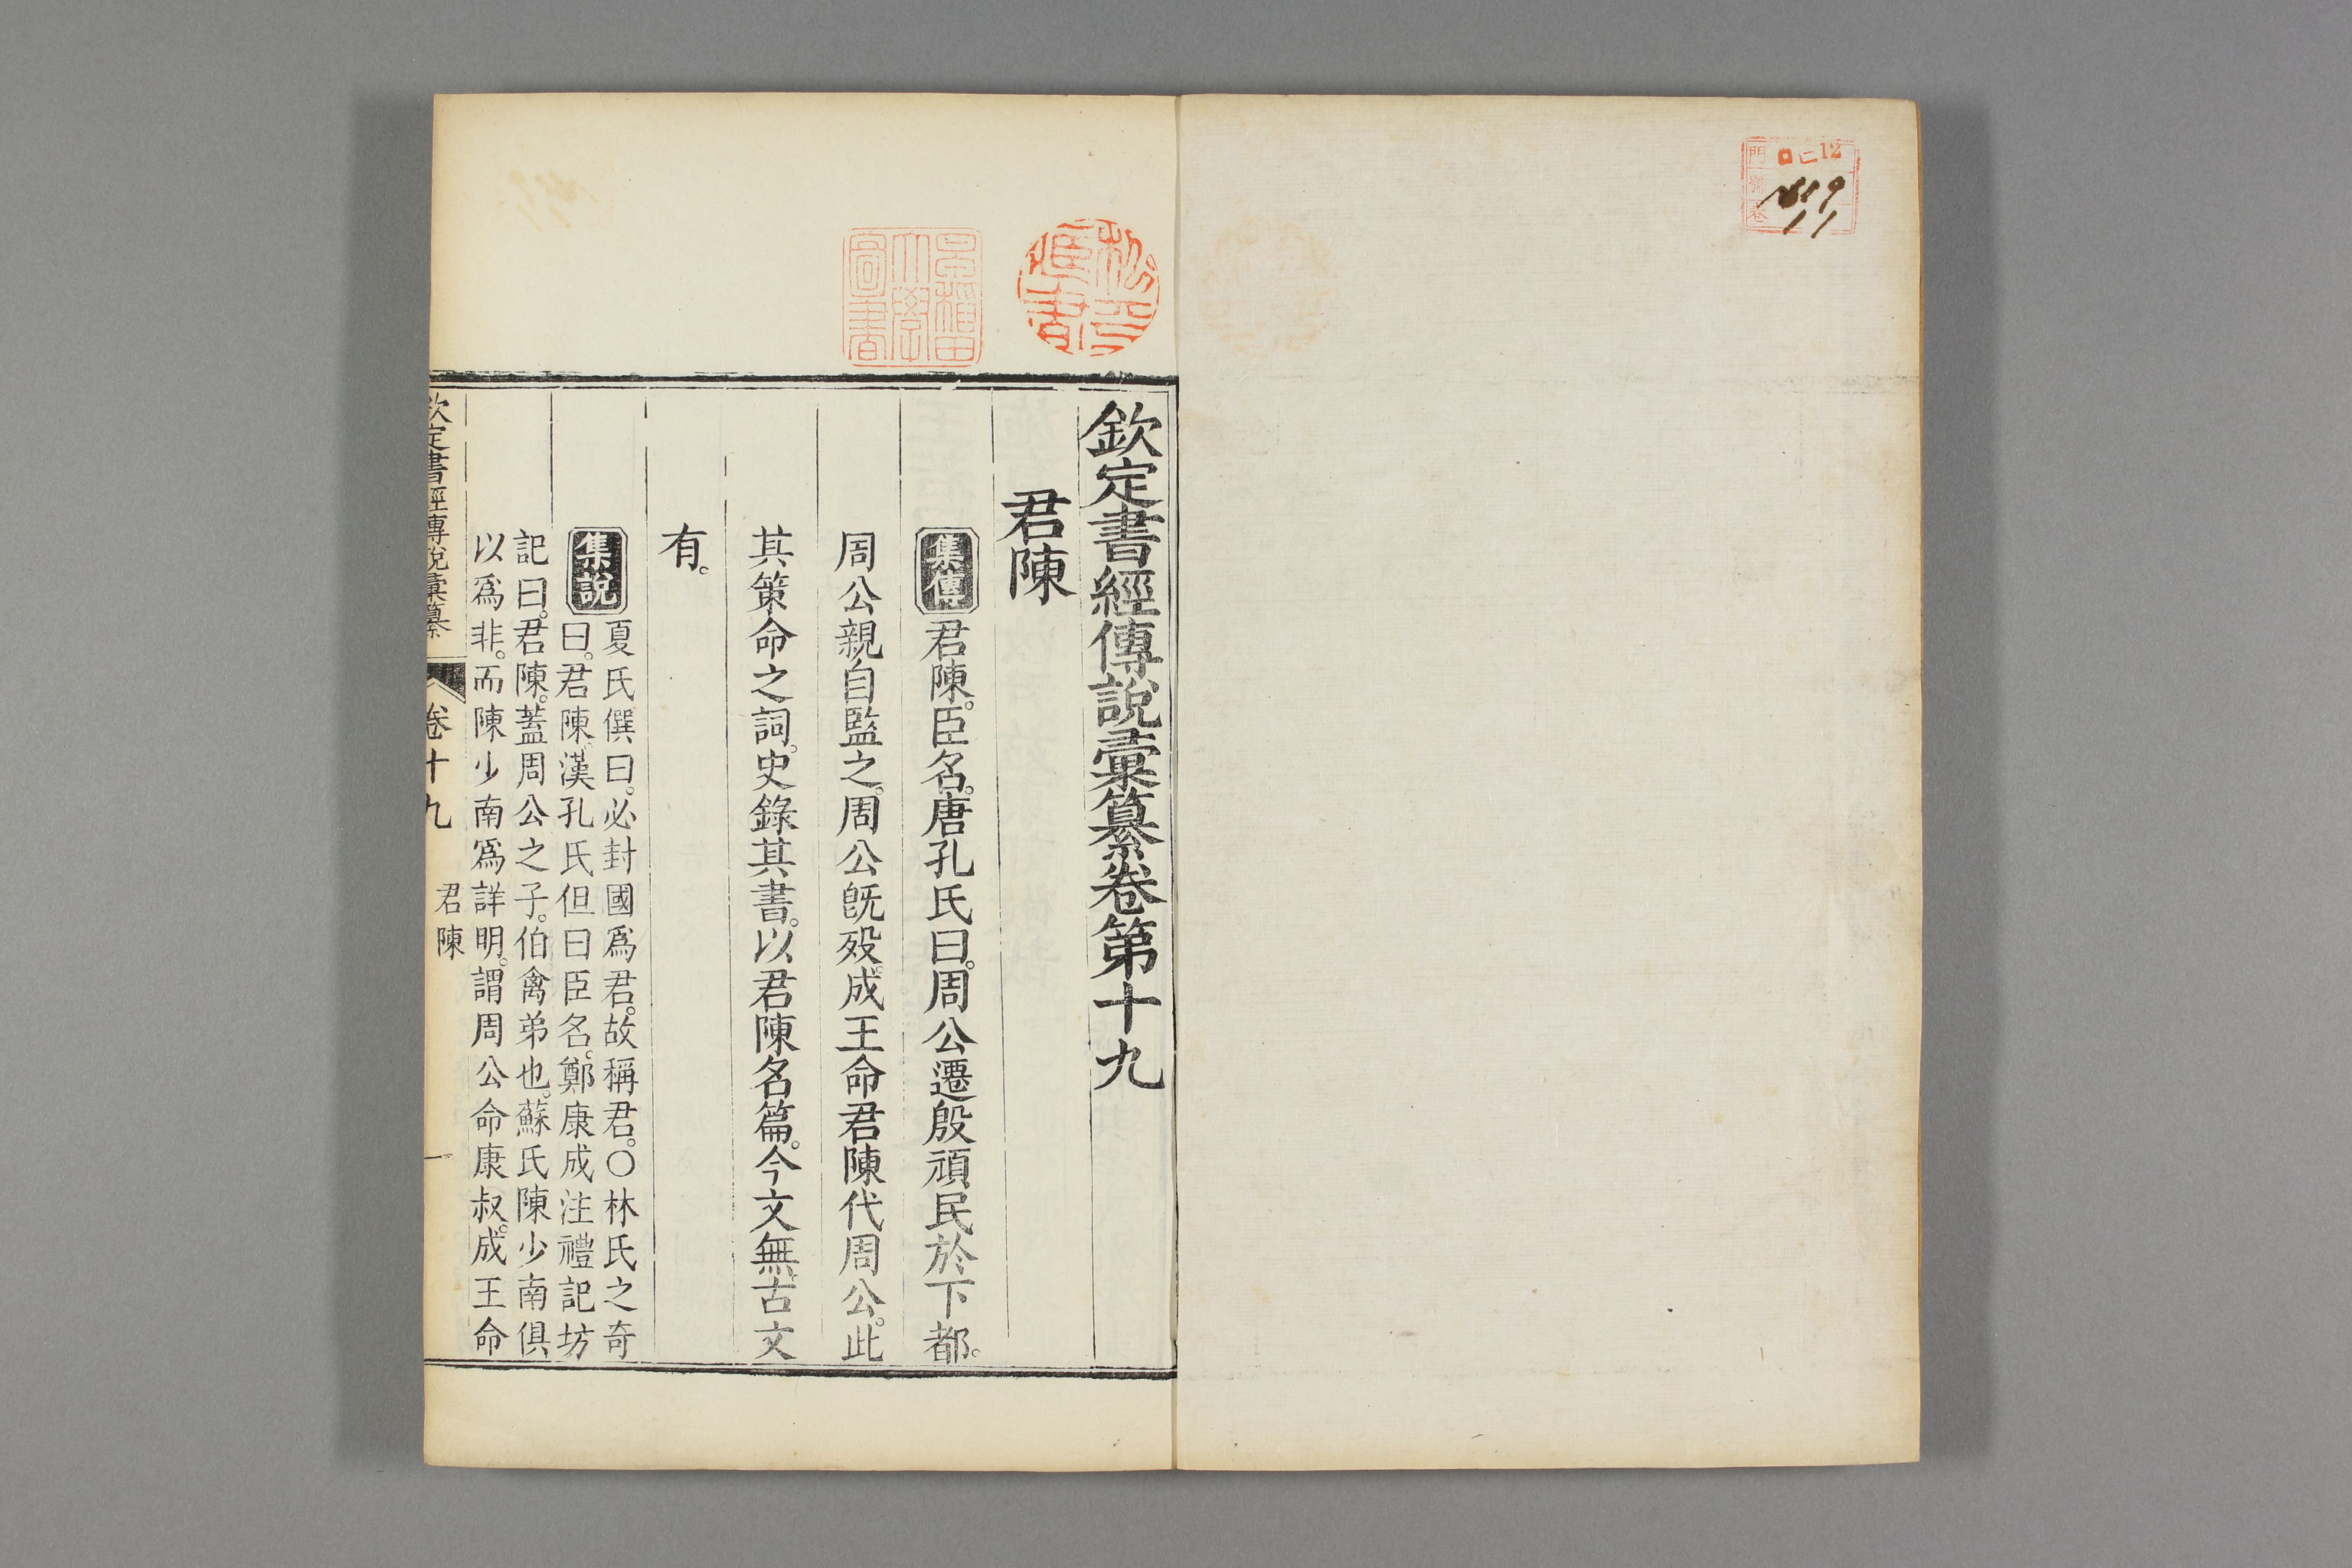 門
號
卷
口
12
11
松平
早稲田
大學
圖書
欽定書經傳說彙纂卷第十九
君陳
集傳 君陳。臣名。唐孔氏曰。周公遷殷頑民於下都。
周公親自監之。周公旣歿。成王命君陳代周公。此
其策命之詞。史錄其書。以君陳名篇。今文無。古文
有。
集說 夏氏僎曰。必封國爲君。故稱君。○林氏之奇
曰。君陳。漢孔氏但曰臣名。鄭康成注禮記坊
記曰。君陳。蓋周公之子。伯禽弟也。蘇氏陳少南俱
以爲非。而陳少南爲詳明。謂周公命康叔。成王命
欽定書經傳說彙纂 卷十九 君陳 一